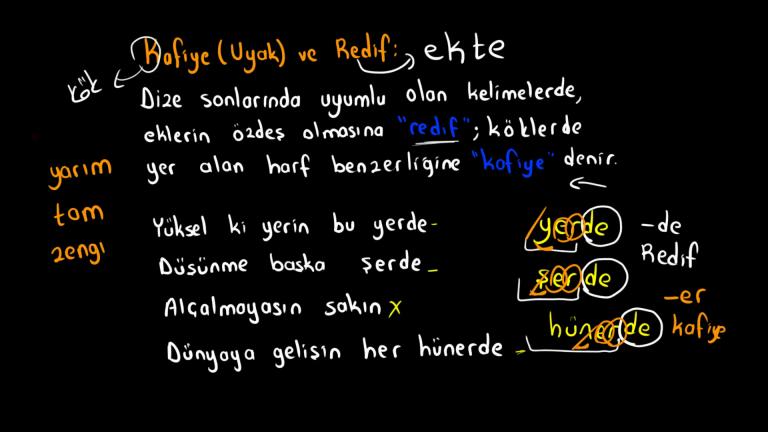 Kafiye (Uyak) ve Redif: ekte
kök
Dize sonlarında uyumlu olan kelimelerde,
eklerin özdeş olmasına "redif"; köklerde
yer alan harf benzerliğine "kafiye" denir.
yarım
tam
zengi
Yüksel ki yerin bu yerde-
Düsünme baska şerde-
Alçalmayasın sakın x
Dünyaya gelişin her hünerde -
yerde
şerde
hünerde
-de
Redif
-er
kafiye